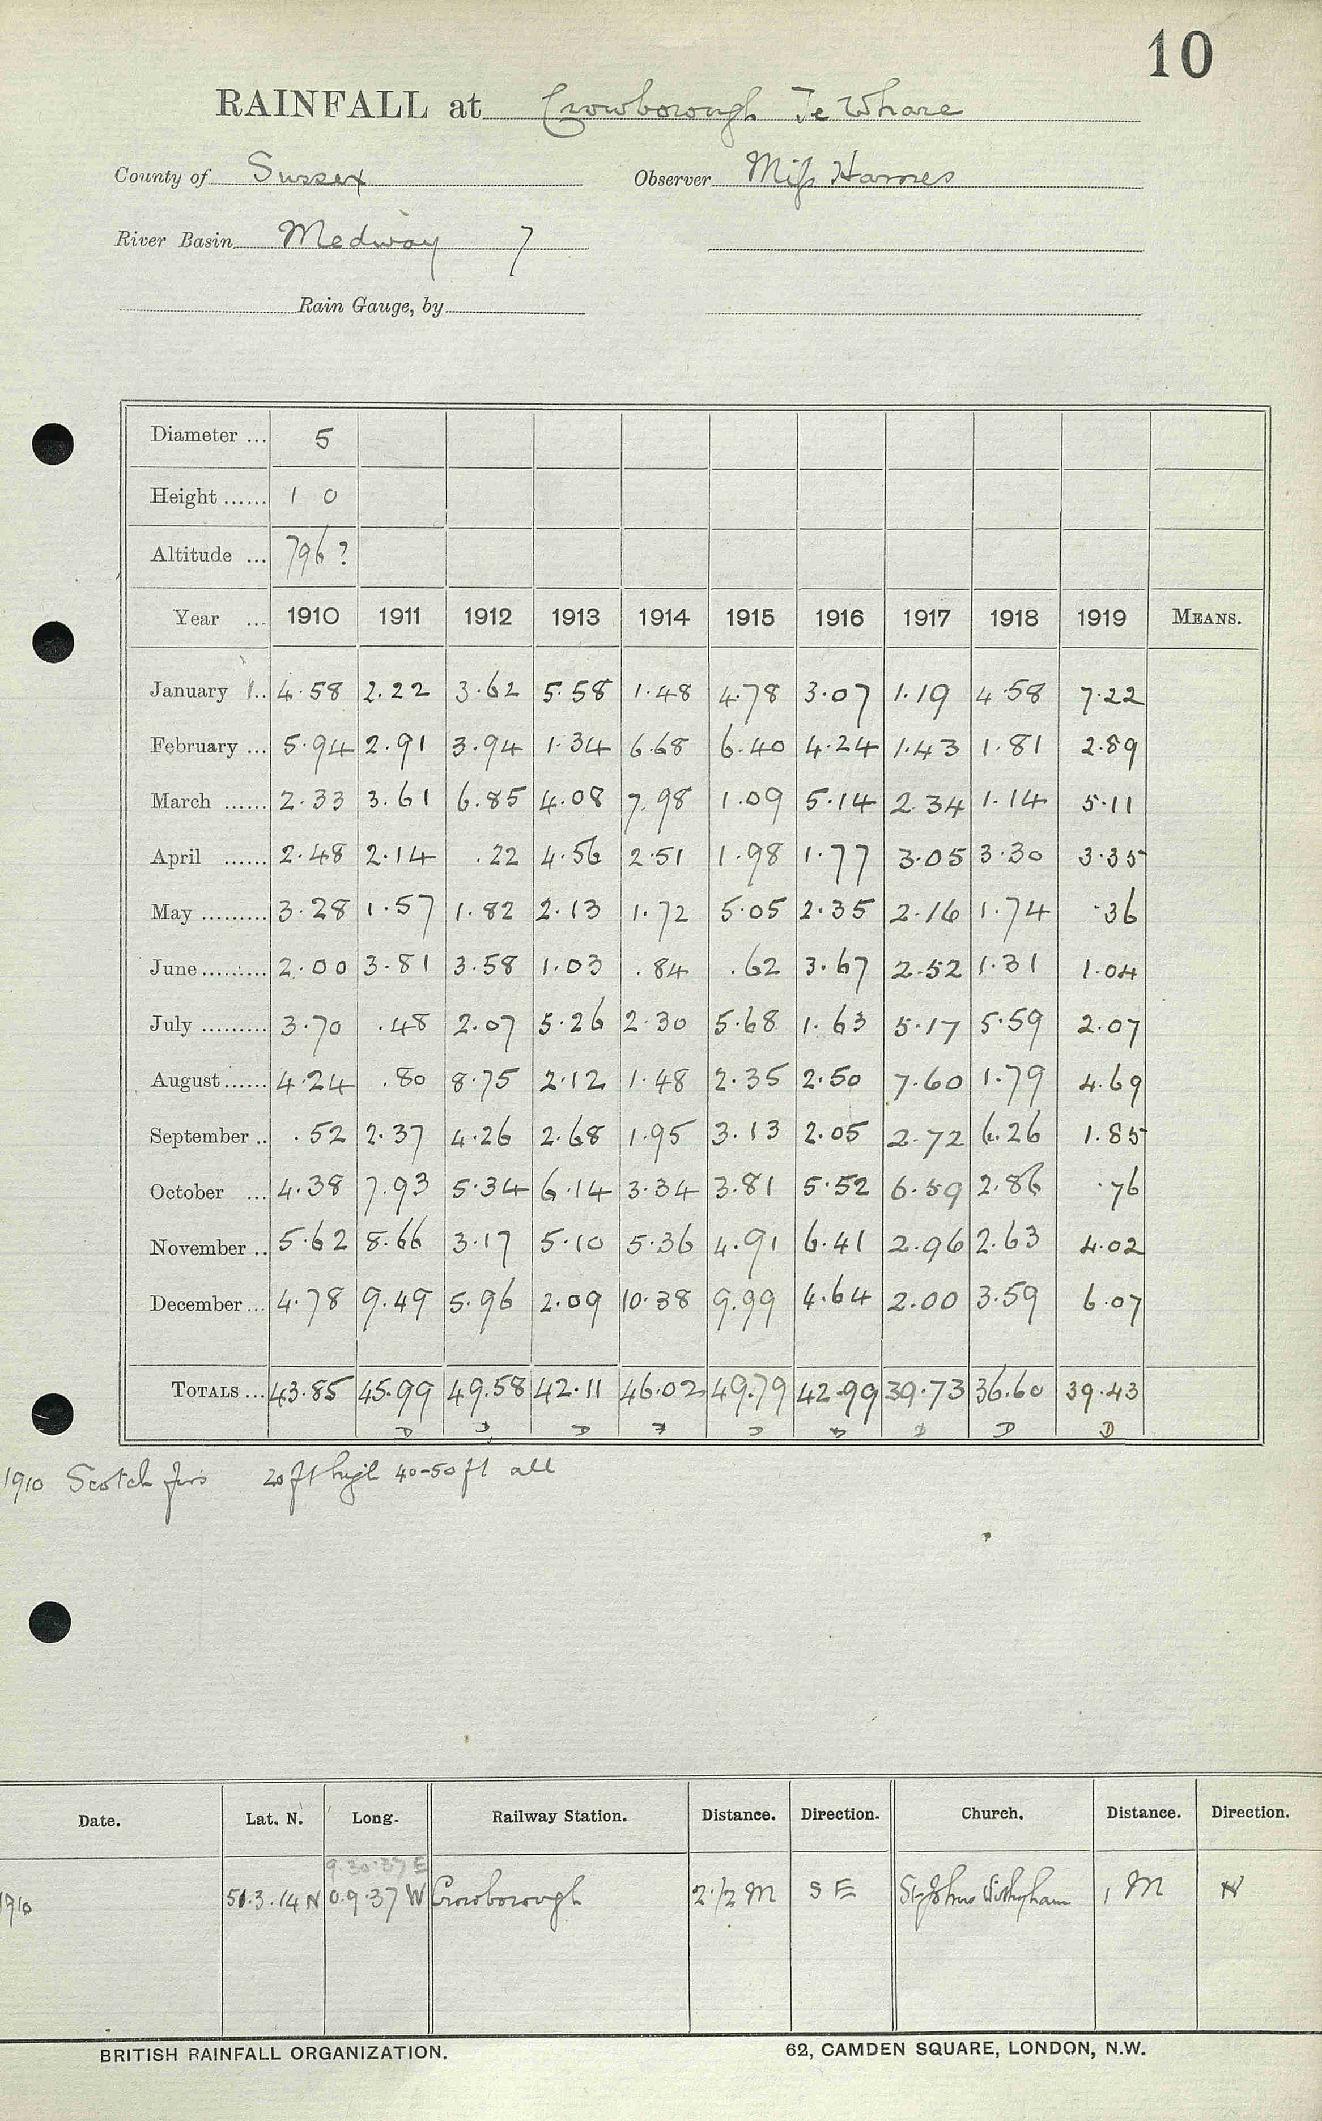 10
RAINFALL at Crowborough Te Whare
County of Sussex Observer Miss Harries
River Basin Medway 7
Rain Gauge, by
Diameter ... 5
Height ...... 1 0
Altitude ... 796?
Year ... 1910 1911 1912 1913 1914 1915 1916 1917 1918 1919 MEANS.
January 1.. 4.58 2.22 3.62 5.58 1.48 4.78 3.07 1.19 4.58 7.22
February ... 5.94 2.91 3.94 1.34 6.68 6.40 4.24 1.43 1.81 2.89
March ...... 2.33 3.61 6.85 4.08 7.98 1.09 5.14 2.34 1.14 5.11
April ...... 2.48 2.14 .22 4.56 2.51 1.98 1.77 3.05 3.30 3.35
May ......... 3.28 1.57 1.82 2.13 1.72 5.05 2.35 2.16 1.74 .36
June ......... 2.00 3.81 3.58 1.03 .84 .62 3.67 2.52 1.31 1.04
July ......... 3.70 .48 2.07 5.26 2.30 5.68 1.63 5.17 5.59 2.07
August ...... 4.24 .80 8.75 2.12 1.48 2.35 2.50 7.60 1.79 4.69
September .. .52 2.37 4.26 2.68 1.95 3.13 2.05 2.72 6.26 1.85
October ... 4.38 7.93 5.34 6.14 3.34 3.81 5.52 6.59 2.86 .76
November .. 5.62 8.66 3.17 5.10 5.36 4.91 6.41 2.96 2.63 4.02
December ... 4.78 9.49 5.96 2.09 10.38 9.99 4.64 2.00 3.59 6.07
TOTALS ... 43.85 45.99 49.58 42.11 46.02 49.79 42.99 39.73 36.60 39.43
D D D D D D D D
1910 Scotch firs 20 ft high 40-50 ft all
Date. Lat. N. Long. Railway Station. Distance. Direction. Church. Distance. Direction.
9.30.37 E
1910 51.3.14 N 0.9.37 W Crowborough 2 1/2 M S E St Johns 1 M N
BRITISH RAINFALL ORGANIZATION. 62, CAMDEN SQUARE, LONDON, N.W.